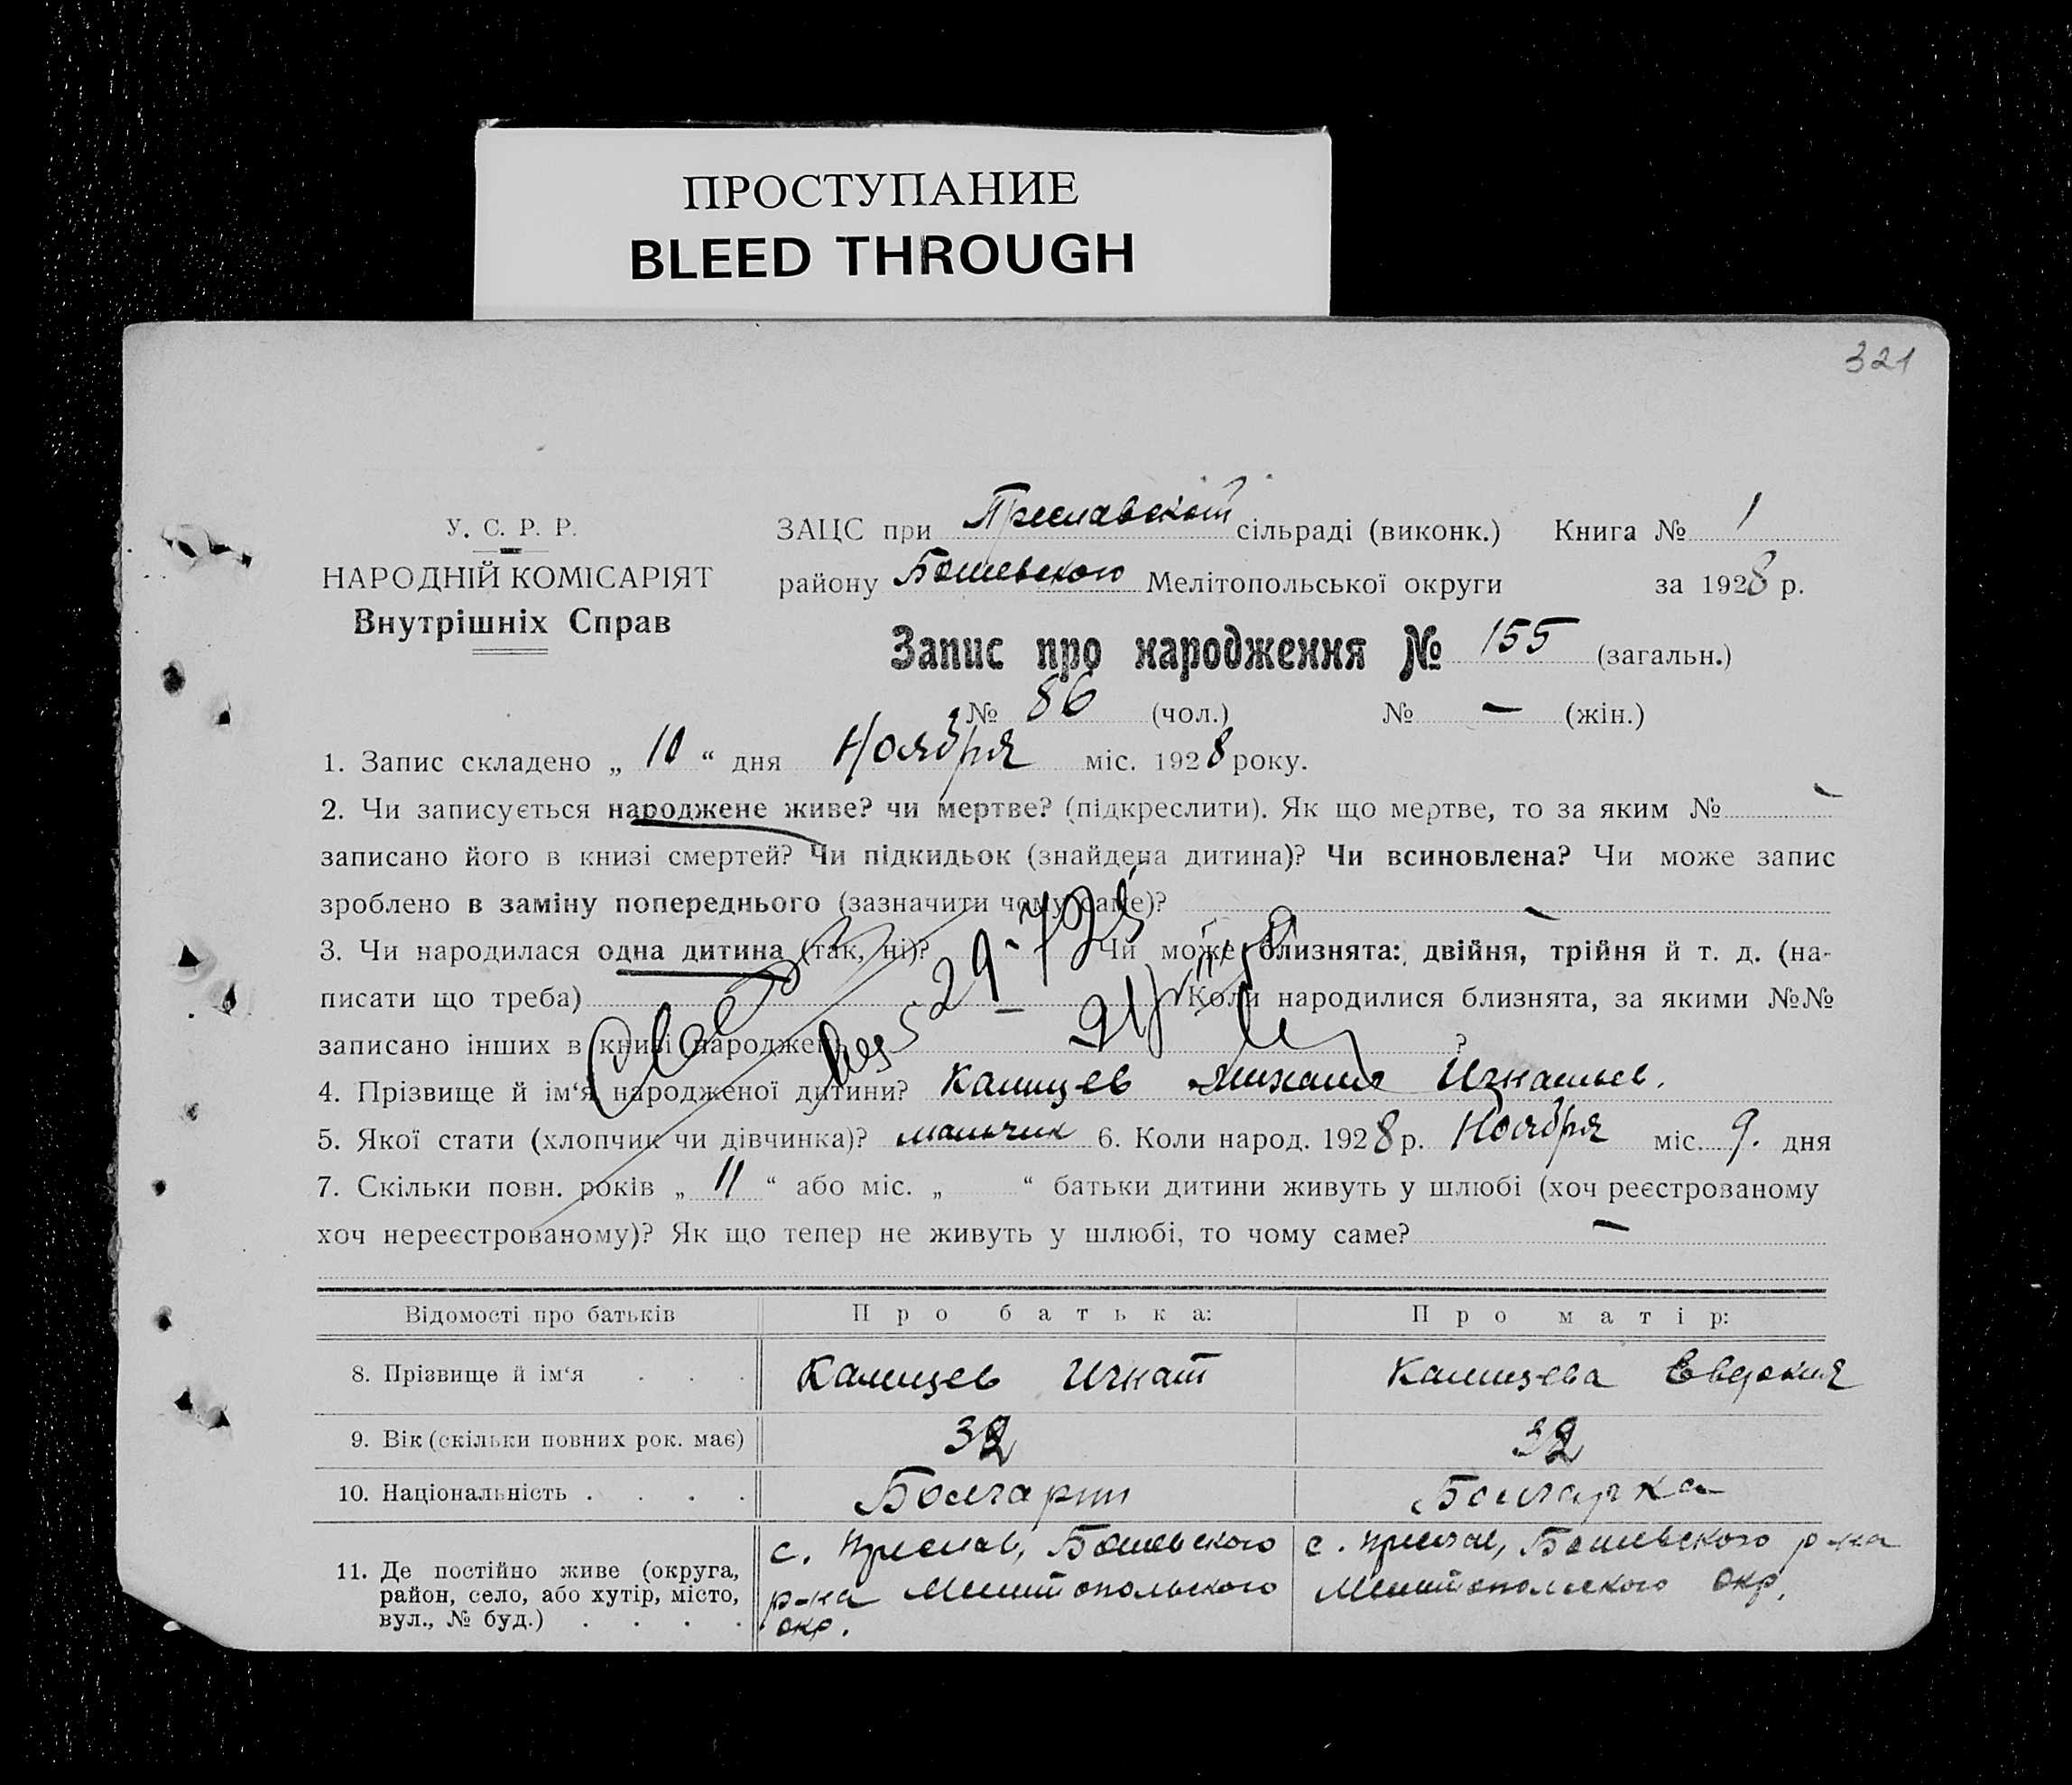 ПРОСТУПАНИЕ
BLEED THROUGH
321
У. С. Р. Р.
НАРОДНІЙ КОМІСАРІЯТ
Внутрішніх Справ
ЗАЦС при Преславской сільраді (виконк.) Книга № 1
району Мелітопольської округи за 1928 р.
Запис про народження № 155 (загальн.)
№ 86 (чол.) № — (жін.)
1. Запис складено „ 10 “ дня Ноября міс. 1928 року.
2. Чи записується народжене живе? чи мертве? (підкреслити). Як що мертве, то за яким № —
записано його в книзі смертей? Чи підкидьок (знайдена дитина)? Чи всиновлена? Чи може запис
зроблено в заміну попереднього (зазначити чому саме)? —
3. Чи народилася одна дитина (так, ні)? Чи може близнята: двійня, трійня й т. д. (на-
писати що треба) — Коли народилися близнята, за якими №№
записано інших в книзі народжень ?
4. Прізвище й ім‘я народженої дитини? Михаил Игнатьев.
5. Якої стати (хлопчик чи дівчинка)? мальчик 6. Коли народ. 1928 р. Ноября міс. 9. дня
7. Скільки повн. років „ 11 “ або міс. „ “ батьки дитини живуть у шлюбі (хоч реєстрованому
хоч нереєстрованому)? Як що тепер не живуть у шлюбі, то чому саме? —
Відомості про батьків Про батька: Про матір:
8. Прізвище й ім‘я . . . Игнат Евдокия
9. Вік (скільки повних рок. має) 32 32
10. Національність . . . . Болгарин Болгарка
11. Де постійно живе (округа, район, село, або хутір, місто, вул., № буд.) . . . .
с. Преслав,
р-на Мелитопольского
окр.
с. Преслав, р-на
Мелитопольского окр.